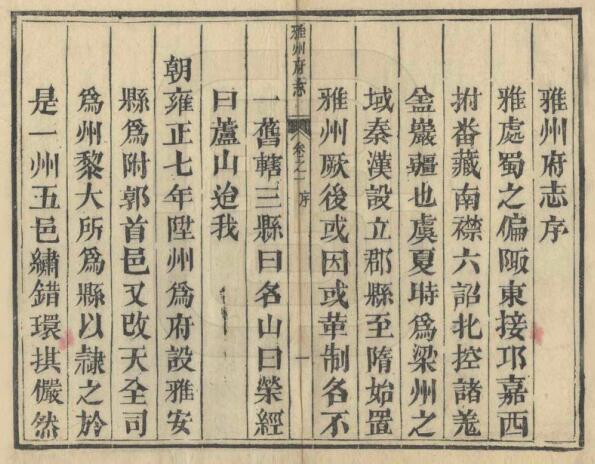 雅州府志序
雅處蜀之偏陬東接邛嘉西
拊番藏南襟六詔北控諸羗
金巖疆也虞夏時為梁州之
域秦漢設立郡縣至隋始置
雅州厥後或因或革制名不
雅州府志 卷之一 序 一
一舊轄三縣曰名山曰榮經
曰蘆山迨我
朝雍正七年陞州為府設雅安
縣為附郭首邑又改天全司
為州黎大所為縣以隸之於
是一州五邑繡錯環拱儼然